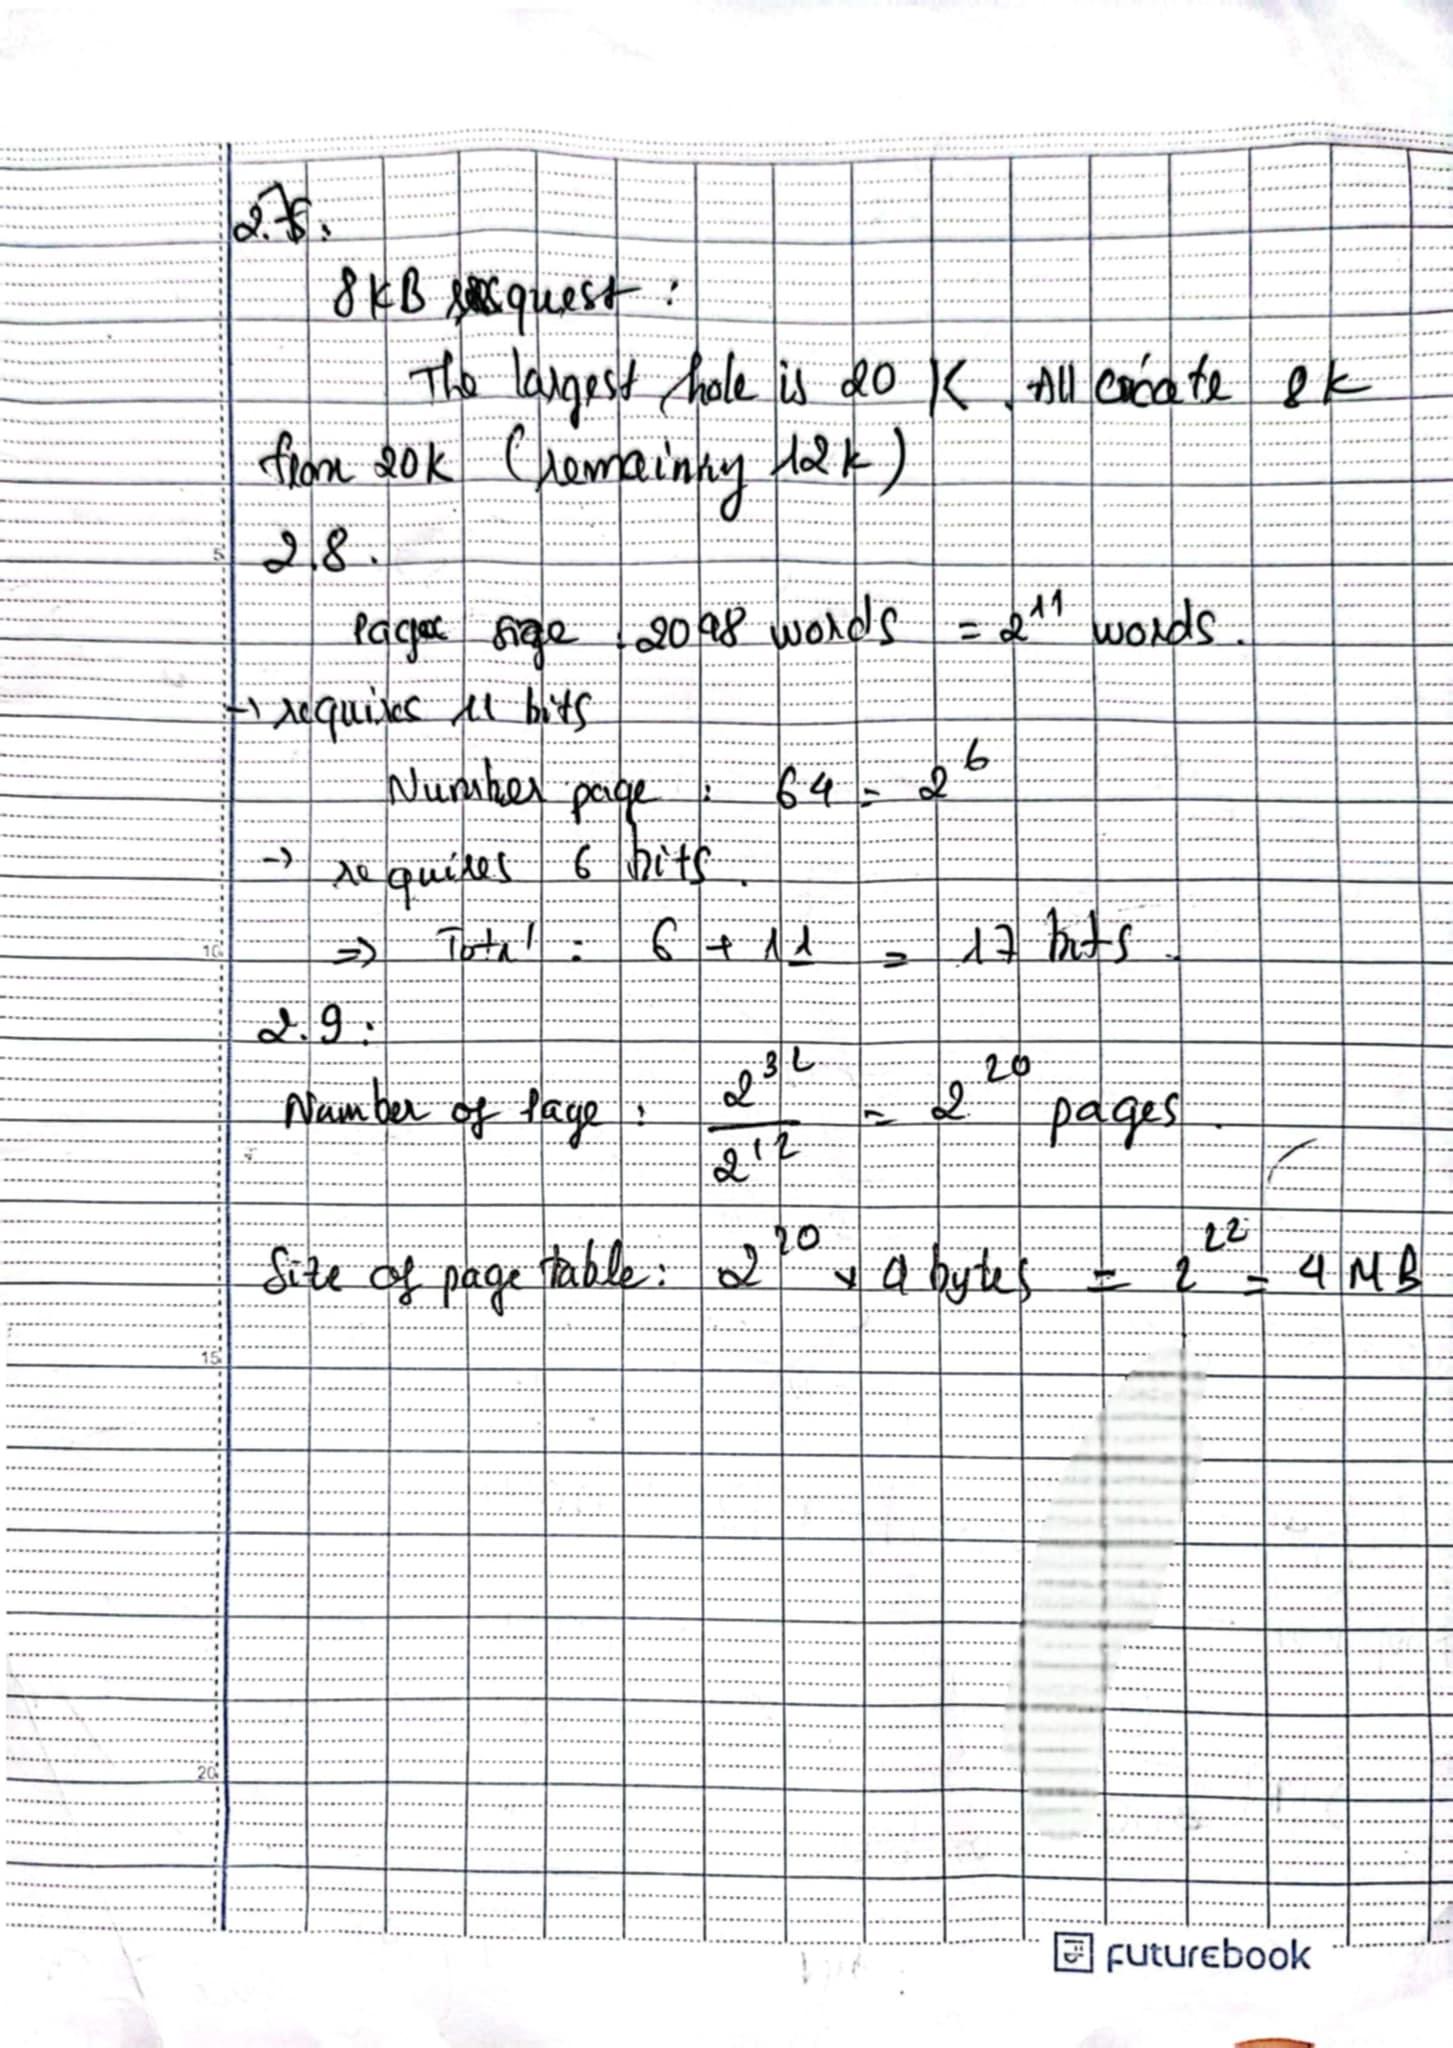 2.7.
8KB request :
The largest hole is 20 K. Allocate 8K
from 20K (remaining 12K)
2.8.
5
Page size : 2048 words = 2^11 words.
→ requires 11 bits
Number page : 64 = 2^6
→ requires 6 bits.
⇒ Total : 6 + 11 = 17 bits.
10
2.9:
Number of Page : 2^32 / 2^12 = 2^20 pages.
Size of page table: 2^20 x 4 bytes = 2^22 = 4 MB
15
20
futurebook